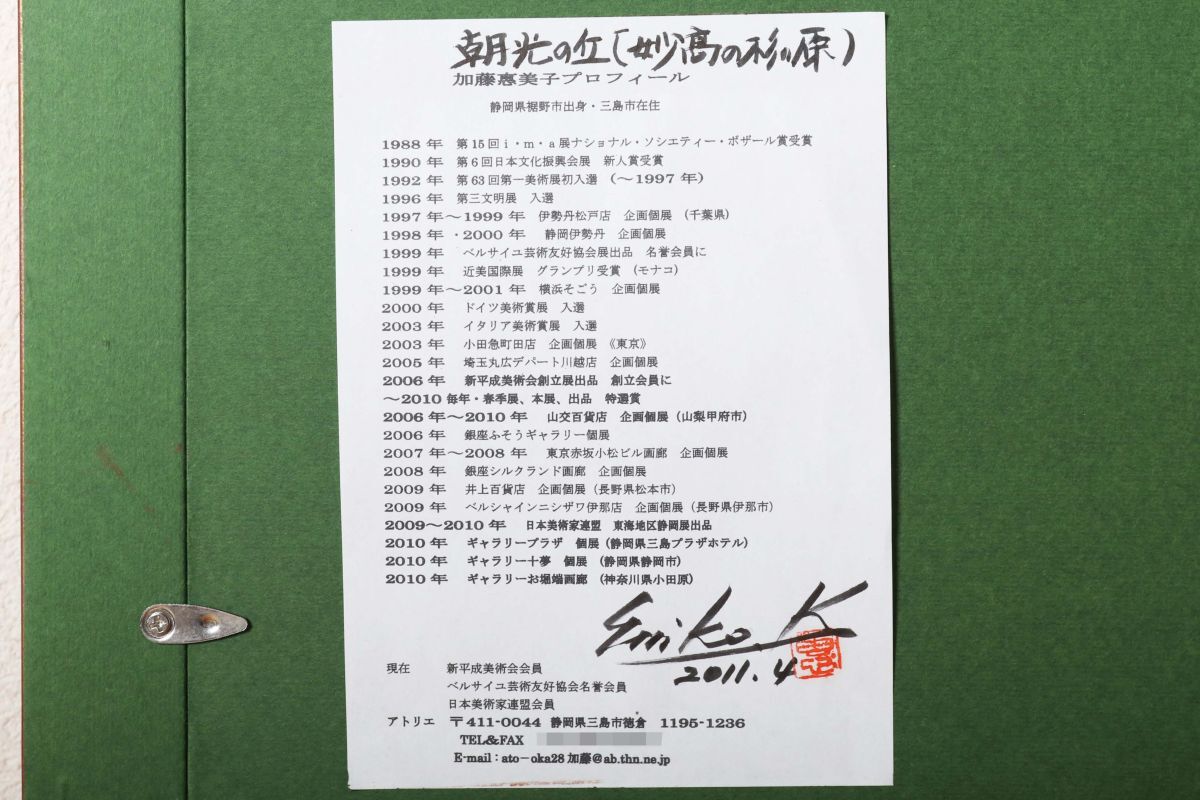 朝光の丘(妙高の杉原)
加藤恵美子プロフィール
静岡県裾野市出身・三島市在住
1988 年 第15回 i・m・a 展ナショナル・ソシエティー・ボザール賞受賞
1990 年 第6回日本文化振興会展 新人賞受賞
1992 年 第63回第一美術展初入選 (～1997 年)
1996 年 第三文明展 入選
1997 年～1999 年 伊勢丹松戸店 企画個展 (千葉県)
1998 年 ・2000 年 静岡伊勢丹 企画個展
1999 年 ベルサイユ芸術友好協会展出品 名誉会員に
1999 年 近美国際展 グランプリ受賞 (モナコ)
1999 年～2001 年 横浜そごう 企画個展
2000 年 ドイツ美術賞展 入選
2003 年 イタリア美術賞展 入選
2003 年 小田急町田店 企画個展 《東京》
2005 年 埼玉丸広デパート川越店 企画個展
2006 年 新平成美術会創立展出品 創立会員に
～2010 毎年・春季展、本展、出品 特選賞
2006 年～2010 年 山交百貨店 企画個展 (山梨甲府市)
2006 年 銀座ふそうギャラリー個展
2007 年～2008 年 東京赤坂小松ビル画廊 企画個展
2008 年 銀座シルクランド画廊 企画個展
2009 年 井上百貨店 企画個展 (長野県松本市)
2009 年 ベルシャインニシザワ伊那店 企画個展 (長野県伊那市)
2009～2010 年 日本美術家連盟 東海地区静岡展出品
2010 年 ギャラリープラザ 個展 (静岡県三島プラザホテル)
2010 年 ギャラリー十夢 個展 (静岡県静岡市)
2010 年 ギャラリーお堀端画廊 (神奈川県小田原)
Emiko.K
2011.4
現在 新平成美術会会員
ベルサイユ芸術友好協会名誉会員
日本美術家連盟会員
アトリエ 〒411-0044 静岡県三島市徳倉 1195-1236
TEL&FAX
E-mail : ato－oka28 加藤@ab.thn.ne.jp